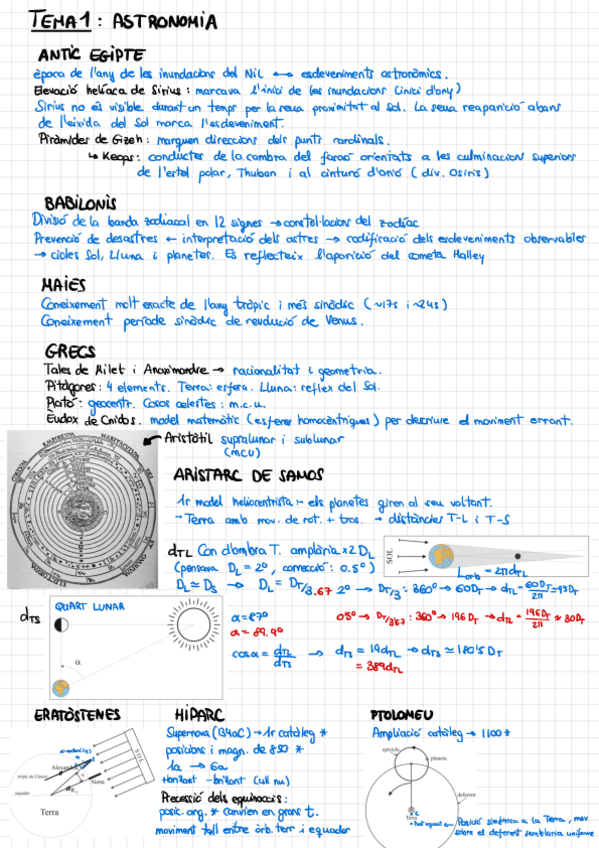 TEMA 1 : ASTRONOMIA
ANTIC EGIPTE
època de l'any de les inundacions del Nil ↔ esdeveniments astronòmics.
Elevació helíaca de Sirius : marcava l'inici de les inundacions (inici d'any)
Sirius no és visible durant un temps per la seua proximitat al Sol. La seua reaparició abans
de l'eixida del Sol marca l'esdeveniment.
Piràmides de Gizeh : marquen direccions dels punts cardinals.
↳ Keops : conductes de la cambra del faraó orientats a les culminacions superiors
de l'estel polar, Thuban i al cinturó d'Orió ( div. Osiris )
BABILONIS
Divisió de la banda zodiacal en 12 signes → constel·lacions del zodíac
Prevenció de desastres ← interpretació dels astres → codificació dels esdeveniments observables
→ cicles Sol, Lluna i planetes. Es reflecteix l'aparició del cometa Halley
MAIES
Coneixement molt exacte de l'any tròpic i més sinòdic ( ~17s i ~24s )
Coneixement període sinòdic de revolució de Venus.
GRECS
Tales de Milet i Anaximandre → racionalitat i geometria.
Pitàgores : 4 elements. Terra: esfera. Lluna: reflex del Sol.
Plató : geocentr. Cosos celestes : m.c.u.
Èudox de Cnidos. model matemàtic ( esferes homocèntriques ) per descriure el moviment errant.
Aristòtil supralunar i sublunar
(mcu)
ARISTARC DE SAMOS
1r model heliocentrista :- els planetes giren al seu voltant.
- Terra amb mov. de rot. + tras. → distàncies T-L i T-S
dTL Con d'ombra T. amplària x2 DL
(pensava DL = 2º, correcció : 0.5º )
DL ≃ DS → DL = DT/3.67 2º → DT/3 : 360º → 60DT → dTL = 60DT/2π ≃ 9'5DT
SOL
Lorb = 2πdTL
0'5º → DT/3'67 : 360º → 196DT → dTL = 196DT/2π ≃ 30DT
dTS
QUART LUNAR
α
α = 87º
α = 89.9º
cosα = dTL/dTS → dTS = 19dTL → dTS ≃ 180'5 DT
= 389dTL
ERATÒSTENES
SOL
Siena
tròpic de Càncer
equador
Terra
HIPARC
Supernova (134aC) → 1r catàleg *
posicions i magn. de 850 *
1a → 6a
+brillant -brillant (ull nu)
Precessió dels equinoccis :
posic. ang. * canvien en grans t.
moviment lent entre òrb. terr i equador
PTOLOMEU
Ampliació catàleg → 1100 *
epicicle
planeta
deferent
Terra
Posició simètrica a la Terra, mov
sobre el deferent semblaria uniforme